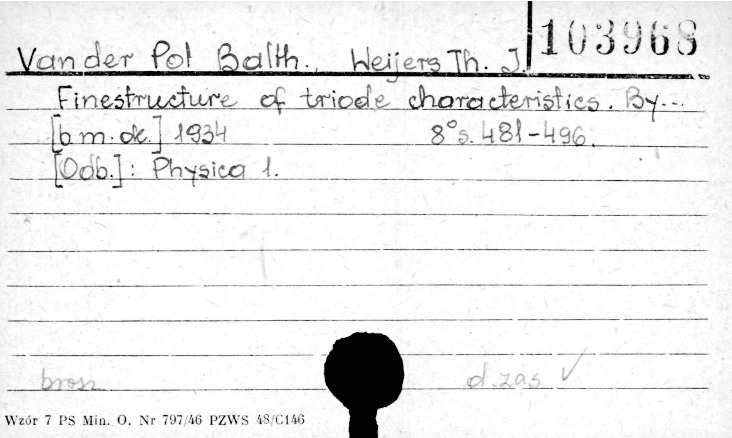 Van der Pol Balth., Weijers Th. J. 103968
Finestructure of triode characteristics. By...
[b.m.dr.] 1934 8° s. 481-496.
[Odb.]: Physica 1.
brosz d. zas. ✓
Wzór 7 PS Min. O. Nr 797/46 PZWS 48/C146